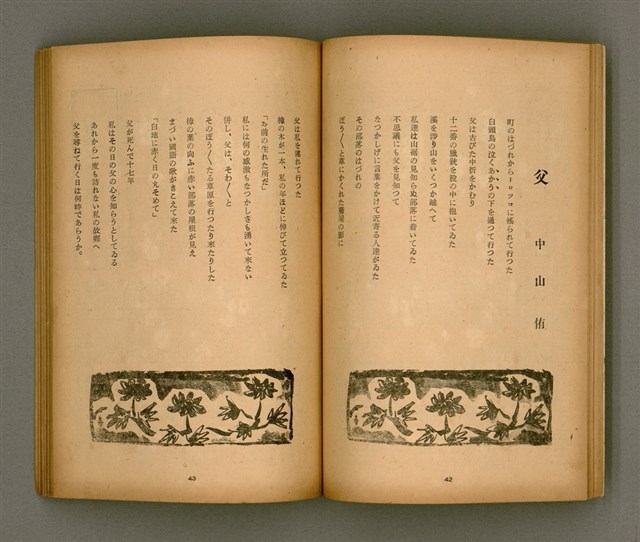 父
中山侑
町のはづれからトロツコに搖られて行つた
白頭鳥の泣くあかうの下を通つて行つた
父は古びた中折をかむり
十二番の獵銃を股の中に抱いてゐた
溪を渉り山をいくつか越へて
私達は山裾の見知らぬ部落に着いてゐた
不思議にも父を見知つて
なつかしげに言葉をかけて近寄る人達がゐた
その部落のはづれの
ぼう／＼と草にかくれた舊屋の影に
42
父は私を連れて行つた
樟の木が一本、私の年ほどに伸びて立つてゐた
「お前の生れた所だ」
私には何の感激もなつかしさも湧いて來ない
併し、父は、そわ／＼と
そのぼう／＼たる草原を行つたり來たりした
樟の葉の向ふに赤い部落の屋根が見え
まづい國語の歌がきこえて來た
「白地に赤く日の丸そめて」
父が死んで十七年
私はその日の父の心を知らうとしてゐる
あれから一度も訪れない私の故郷へ
父を尋ねて行く日は何時であらうか。
43